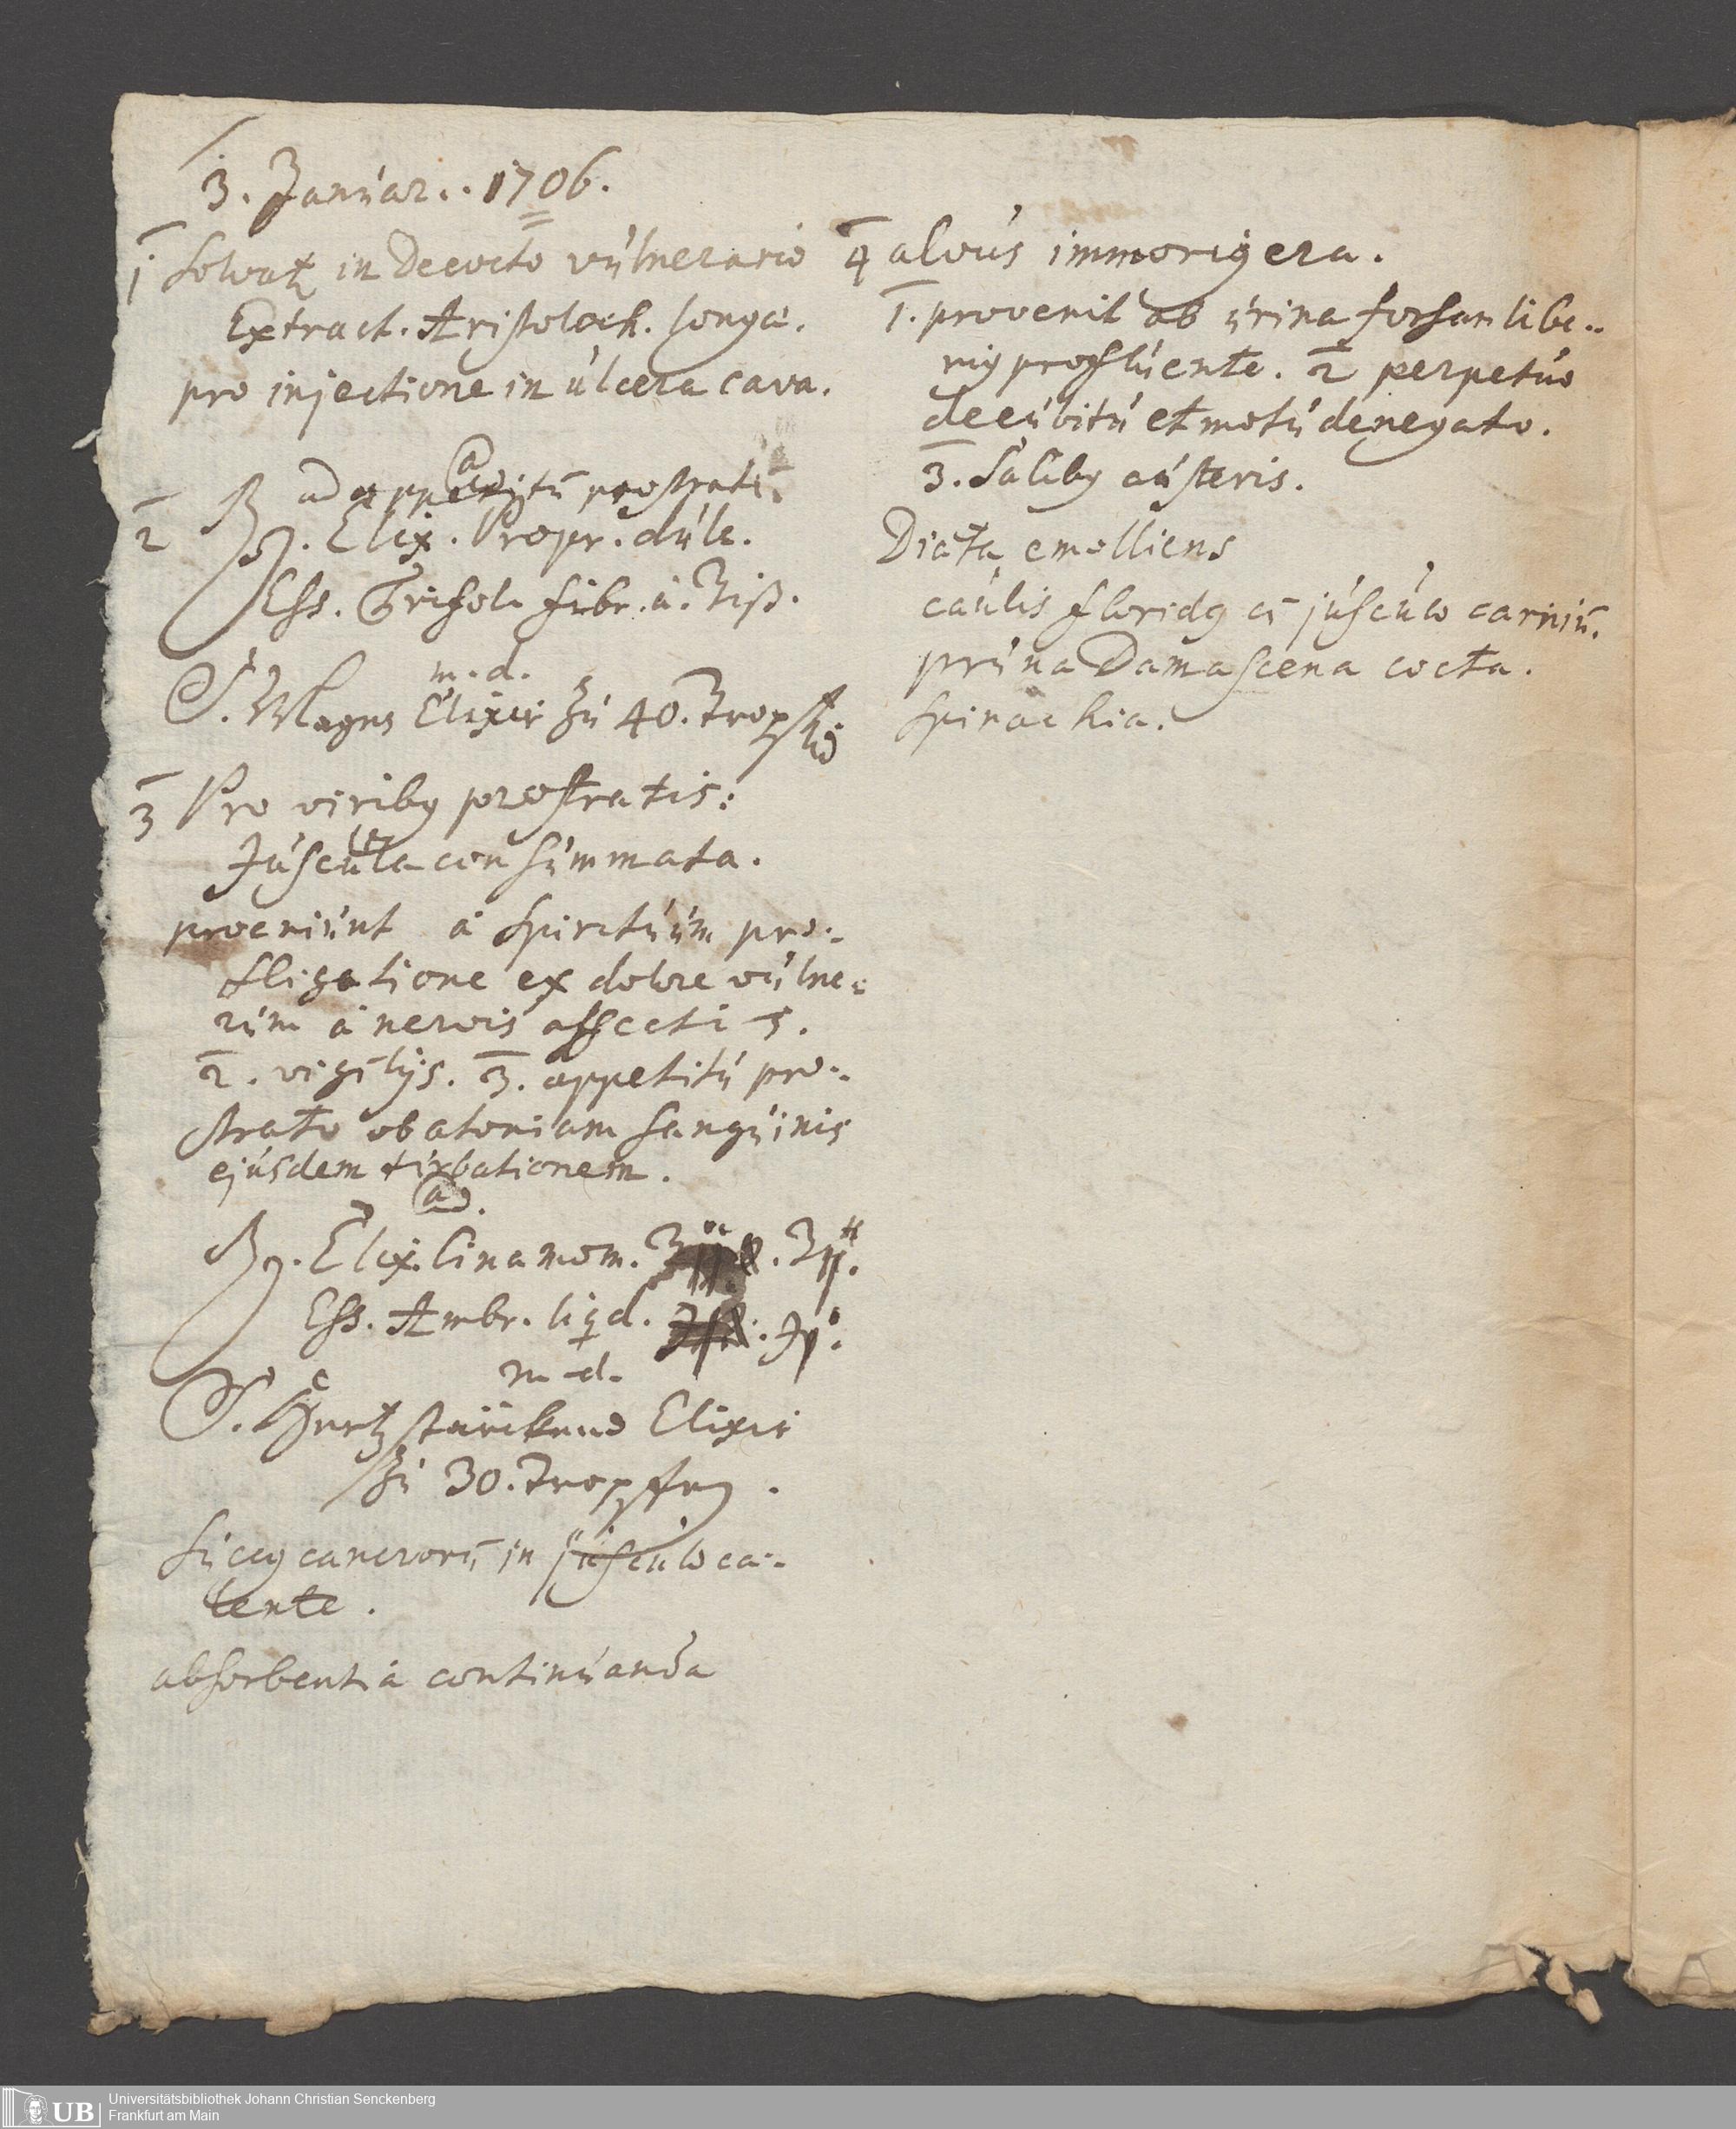 3. Januar. 1706.
1 Solvat in Decocto vulnerario
Extract. Aristoloch. longa.
pro injectione in ulcera cava.
ad appetitū prostratū.
2 ℞. Elix. Propr. dulc.
Ess. Trifol. fibr. a. ʒiß.
m. d.
S. Magen Elixir zu 40. Tropfen
3 Pro viribꝰ prostratis:
Juscula consummata.
proveniunt à spirituum pro-
fligatione ex dolore vulne-
rum à nervis affectis.
2. vigilijs. 3. appetitu pro-
strato ob atoniam sanguinis
ejusdem turbationem.
℞. Elix. Cinamom. ʒij.
Ess. Ambr. liqd. ʒj.
m. d.
S. Hertzstärckend Elixir
zu 30. Tropfen.
Succꝰ cancrorū in jusculo ca-
lente.
absorbentia continuanda
4 alvus immorigera.
1. provenit ab urina forsan libe-
riꝰ profluente. 2 perpetuo
decubitu et motu denegato.
3. Salibꝰ austeris.
Diæta emolliens
caulis floridꝰ cū jusculo carniū.
pruna Damascena cocta.
Spinachia.
UB
Universitätsbibliothek Johann Christian Senckenberg
Frankfurt am Main